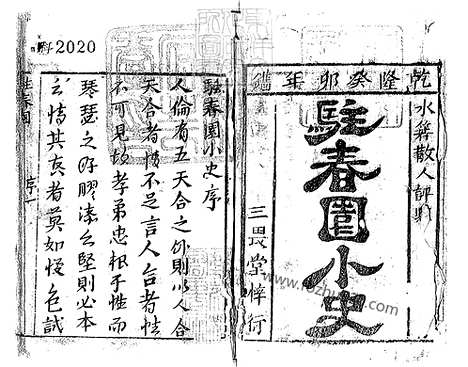 乾隆癸卯年鐫
水箬散人評閱
駐春園小史
三畏堂梓行
駐春園小史序
人倫有五天合之外則以人合
天合者情不足言人合者性
不可見故孝弟忠根于性而
琴瑟之好膠漆之堅則必本
之情其真者莫如悅色誠
駐春園 序 一
科 2020